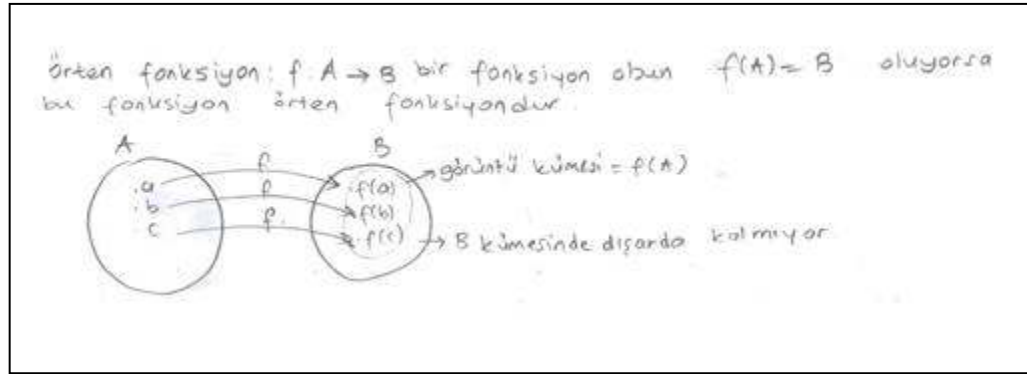 örten fonksiyon: f: A → B bir fonksiyon olsun f(A) = B oluyorsa
bu fonksiyon örten fonksiyondur.
A f B
.a f .f(a) → görüntü kümesi = f(A)
.b f .f(b)
c .f(c) → B kümesinde dışarda kalmıyor